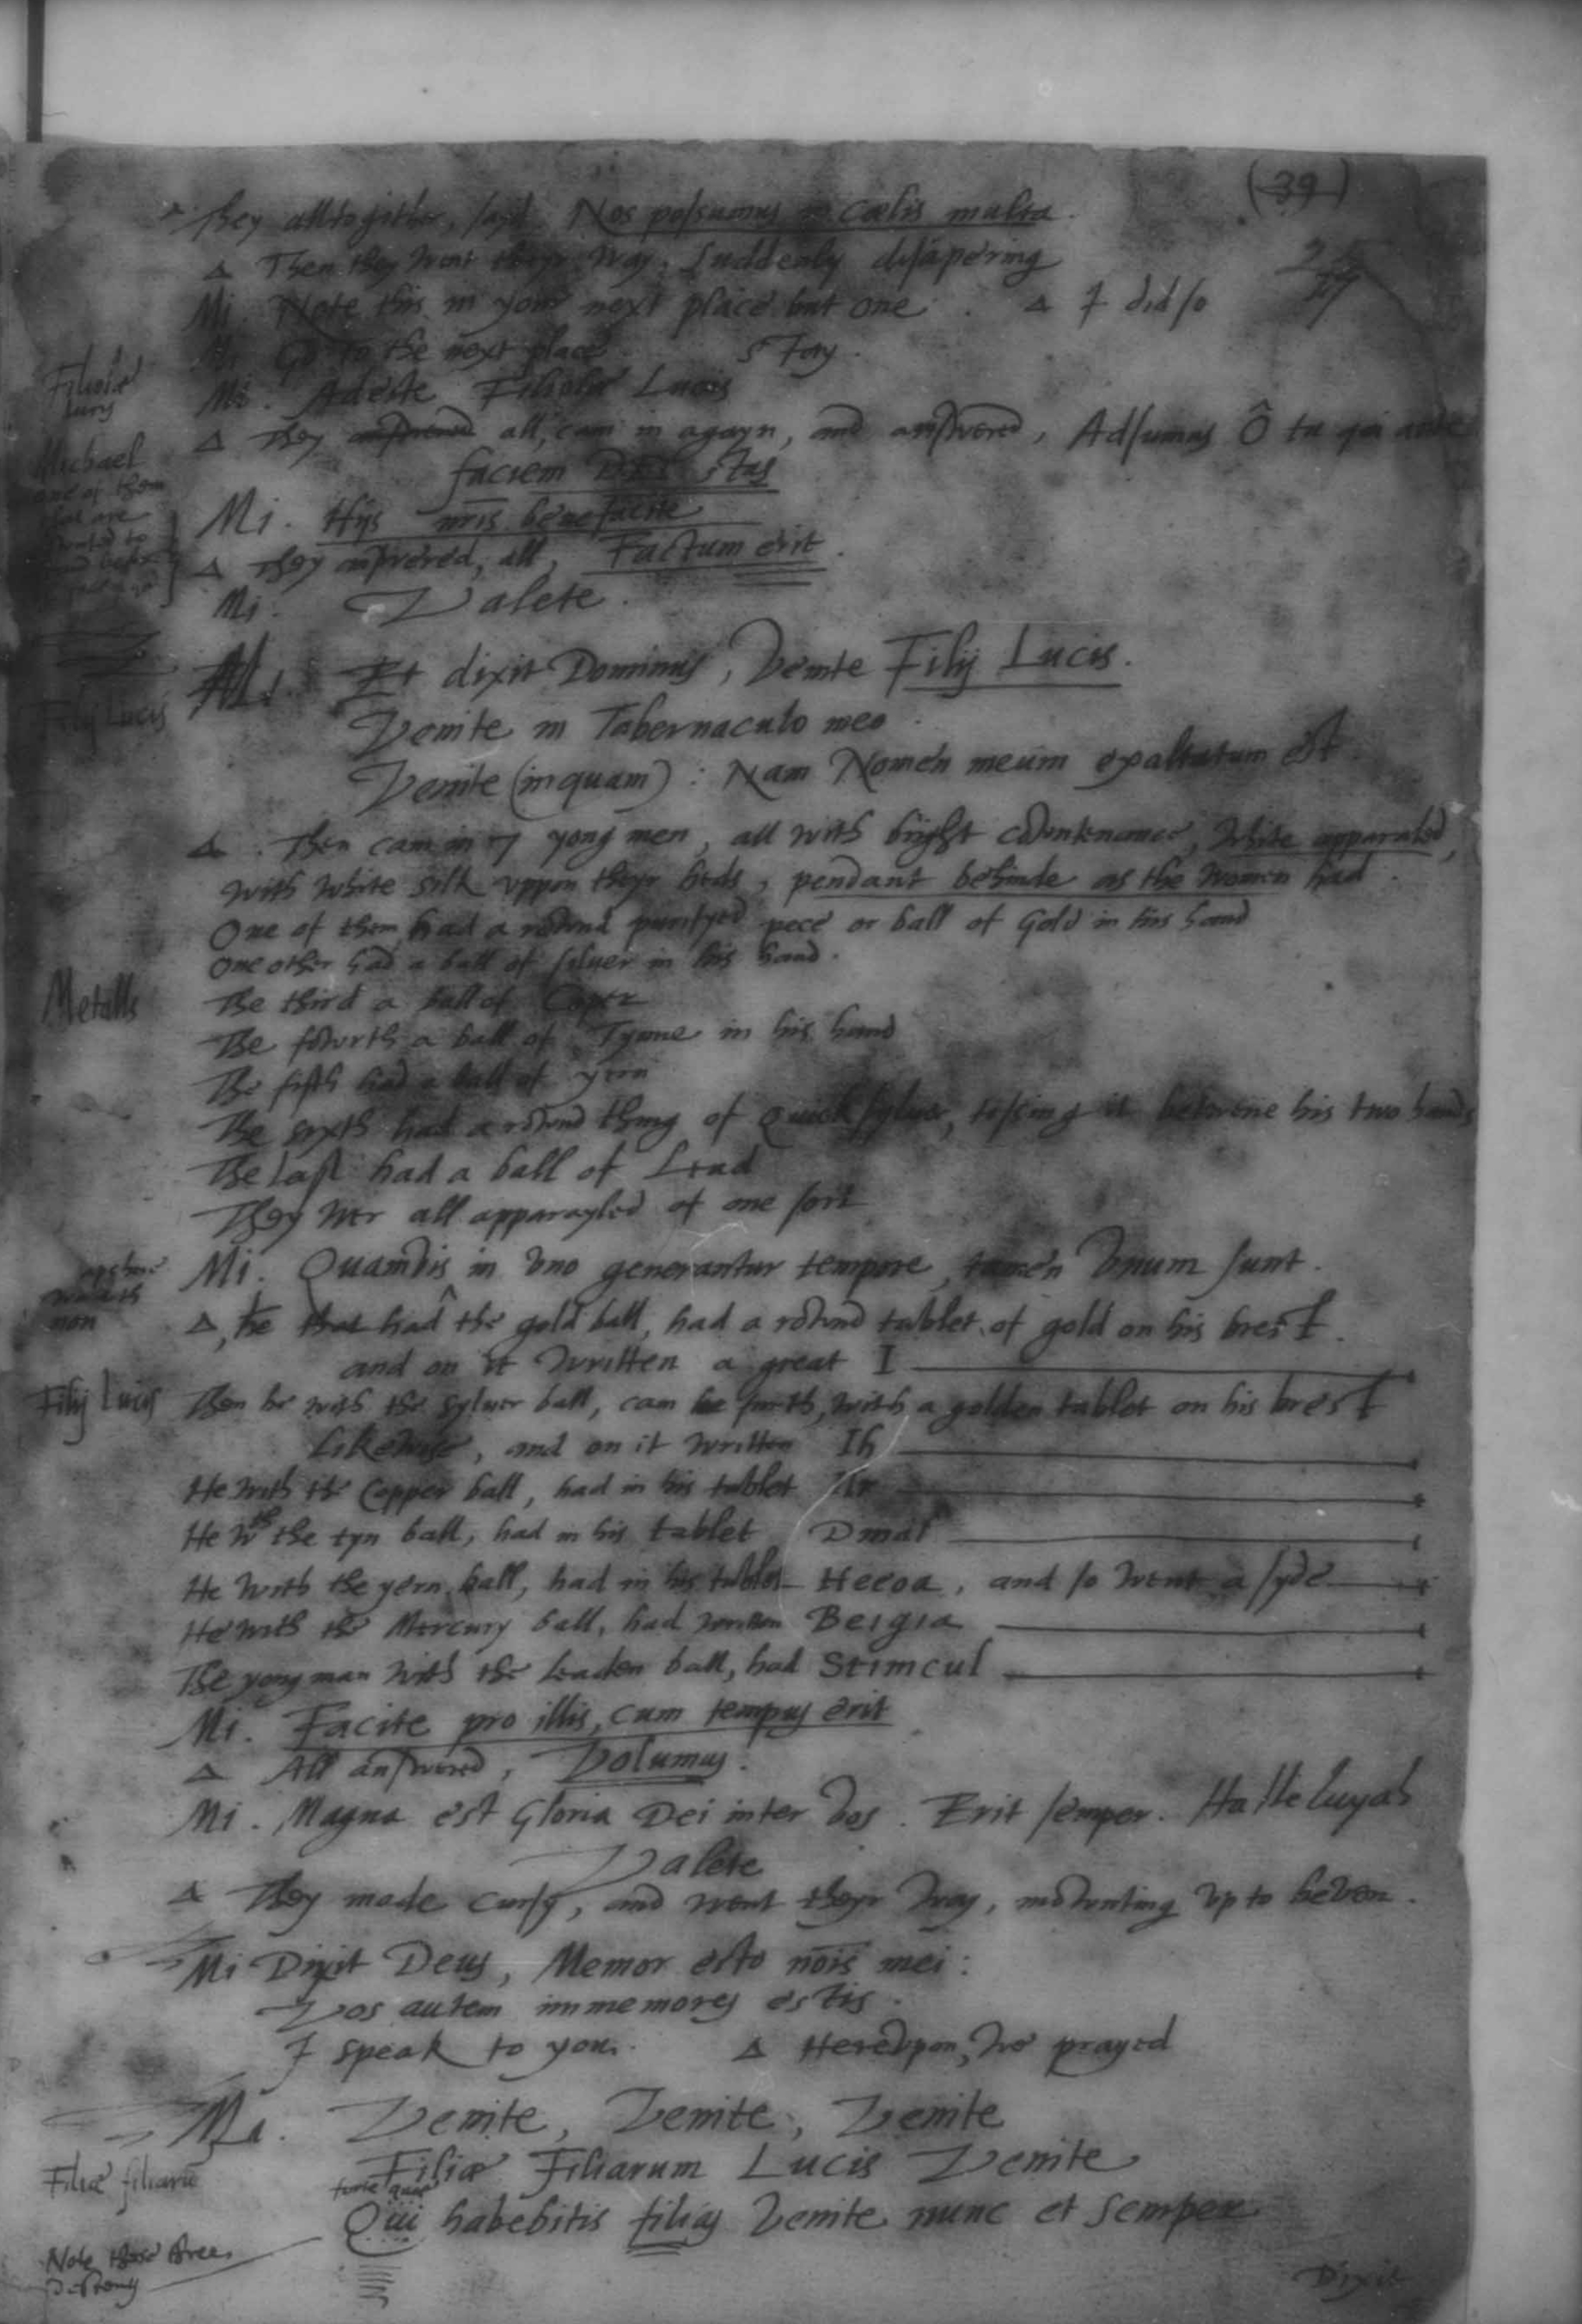 (39)
They alltogither, sayd Nos possumus in Cælis multa.
Δ Then they went theyr way, suddenly disapering
Mi. Note this in your next place but one. Δ I did so
Mi Go to the next place
Filiolæ
Lucis
Mi. Adeste Filiolæ Lucis
Δ They answered all, cam in agayn, and answered, Adsumus Ô tu qui ante
faciem DEI stas
Michael
one of them
that are
Mi. Hijs nris benefacite
Δ They answered, all, Factum erit.
Mi. Valete.
Mi. Et dixit Dominus, Venite Filij Lucis.
Filij Lucis
Venite in Tabernaculo meo.
Venite (inquam): Nam Nomen meum exaltatum est
Δ. Then cam in 7 yong men, all with bright cowntenance, White apparaled,
with white silk uppon theyr heds, pendant behinde as the women had.
One of them had a rownd purifyed pece or ball of Gold in his hand
One other had a ball of silver in his hand.
Metalls
The third a ball of Coper
The fowrth a ball of Tynne in his hand
The fifth had a ball of yern
The sixth had a rownd thing of Quicksylver, tossing it betwene his two hands
The last had a ball of Lead
They wer all apparayled of one sort
Mi. Quamvis in uno generantur tempore, tamen Unum sunt.
Δ, he that had the gold ball, had a rownd tablet of gold on his brest.
and on it written a great I
Filij Lucis
Then he with the sylver ball, cam he furth, with a golden tablet on his brest
Likewise, and on it written Ih
He with the Copper ball, had in his tablet Ilr
He wth the tyn ball, had in his tablet Dmal
He with the yern ball, had in his tablet Heeoa, and so went a syde
He with the Mercury ball, had written Beigia
The yong man with the Leaden ball, had Stimcul
Mi. Facite pro illis, cum tempus erit
Δ All answered, Volumus.
Mi. Magna est Gloria Dei inter vos. Erit semper. Halleluyah
Valete
Δ They made cursy, and went theyr way, mownting up to heven.
Mi Dixit Deus, Memor esto nois mei:
Vos autem immemores estis.
I speak to you. Δ Hereupon, we prayed
Mi. Venite, Venite, Venite
Filiæ Filiarum Lucis Venite
Filiæ filiarū
Qui habebitis filias Venite nunc et Semper
Note these three
Dixit